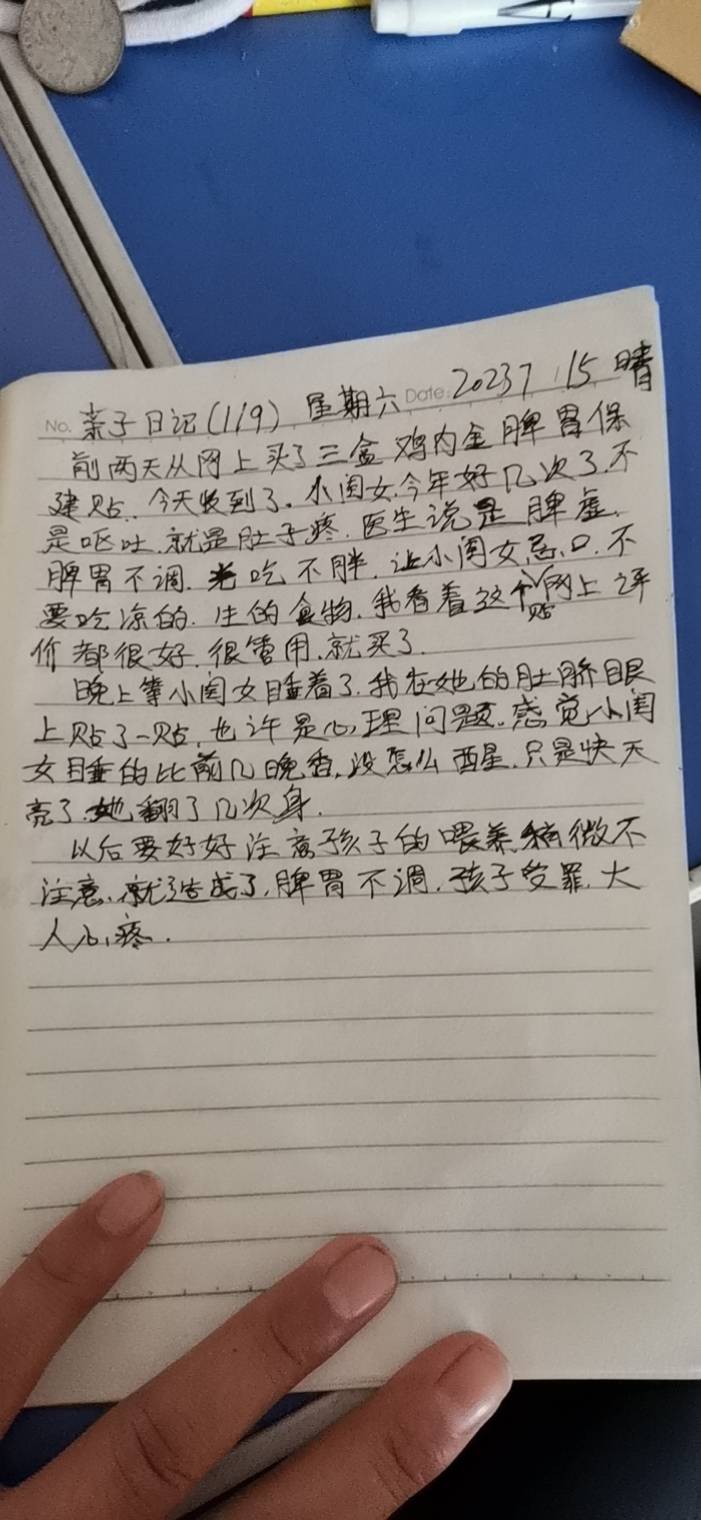 No. 亲子日记(119) 星期六 Date: 2023 7 15 晴
前两天从网上买了三盒鸡内金脾胃保
建贴.今天收到了。小闺女.今年好几次了.不
是呕吐.就是肚子疼.医生说是脾虚.
脾胃不调.老吃不胖.让小闺女忌口.不
要吃凉的.生的食物.我看着这个贴网上评
价都很好.很管用.就买了.
晚上等小闺女睡着了.我在她的肚脐眼
上贴了一贴.也许是心理问题.感觉小闺
女睡的比前几晚香.没怎么西星.只是快天
亮了.她翻了几次身.
以后要好好注意孩子的喂养.稍微不
注意.就造成了.脾胃不调.孩子受罪.大
人心疼.